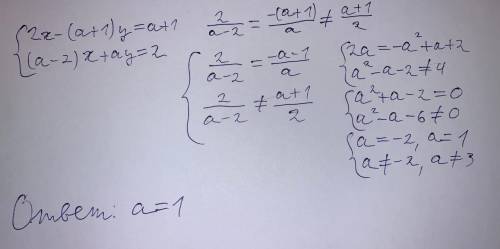 {2x-(a+1)y=a+1
{(a-2)x+ay=2
2/(a-2) = -(a+1)/a ≠ (a+1)/2
{2/(a-2) = (-a-1)/a
{2/(a-2) ≠ (a+1)/2
{2a=-a²+a+2
{a²-a-2≠4
{a²+a-2=0
{a²-a-6≠0
{a=-2, a=1
{a≠-2, a≠3
Ответ: a=1